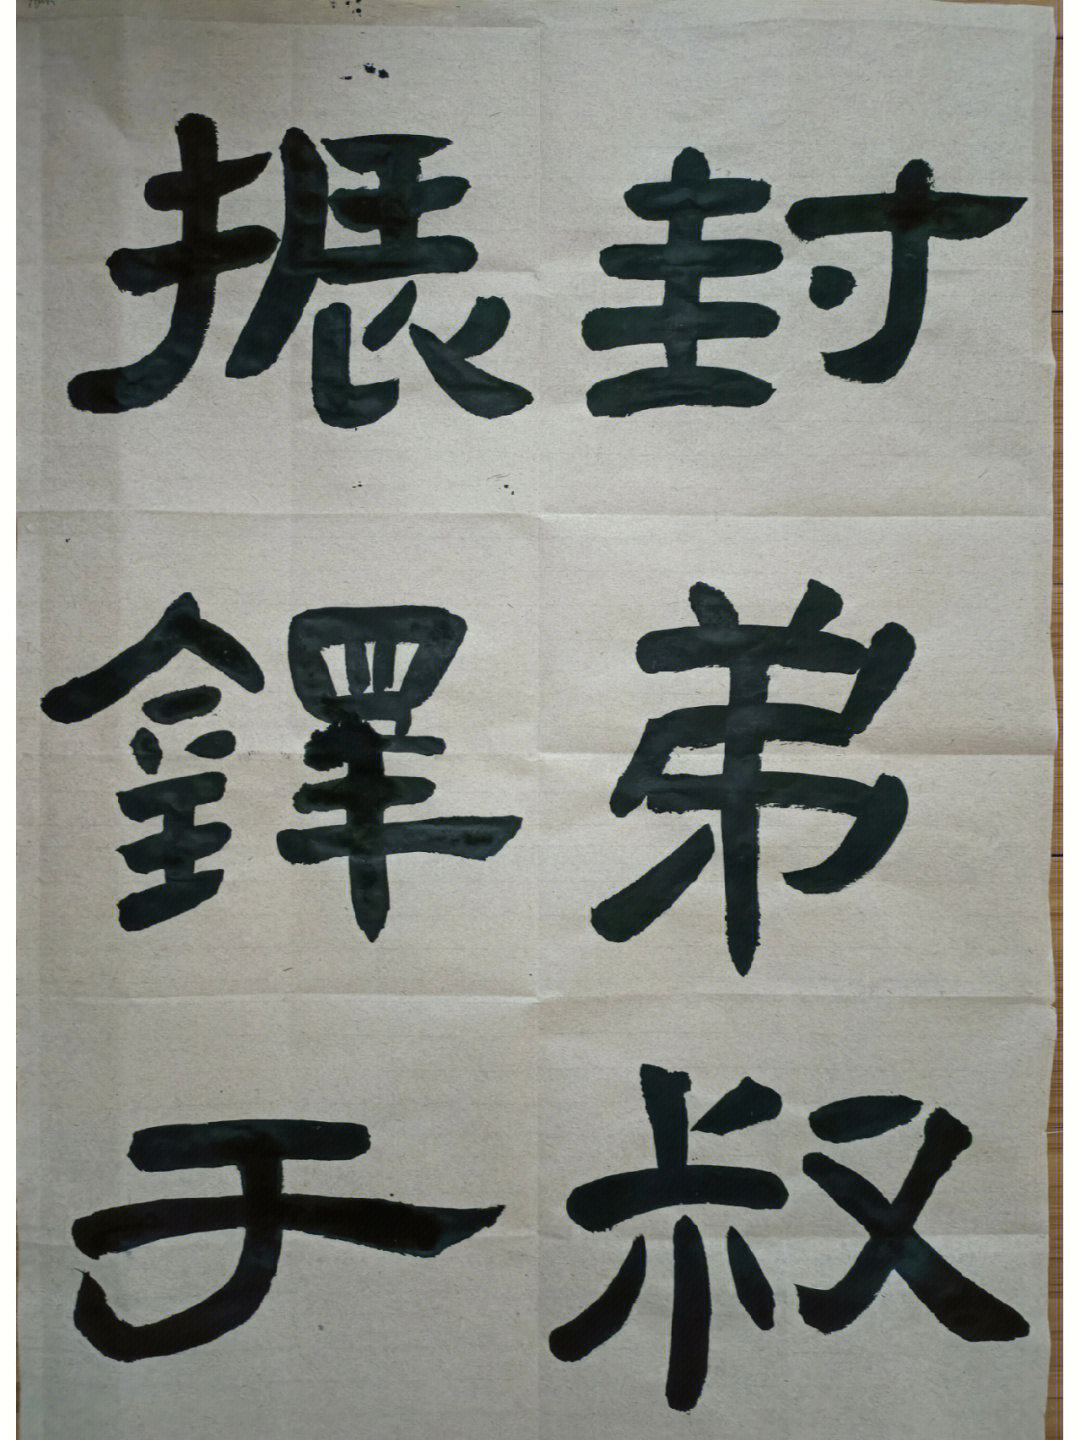 封弟叔
振鐸于